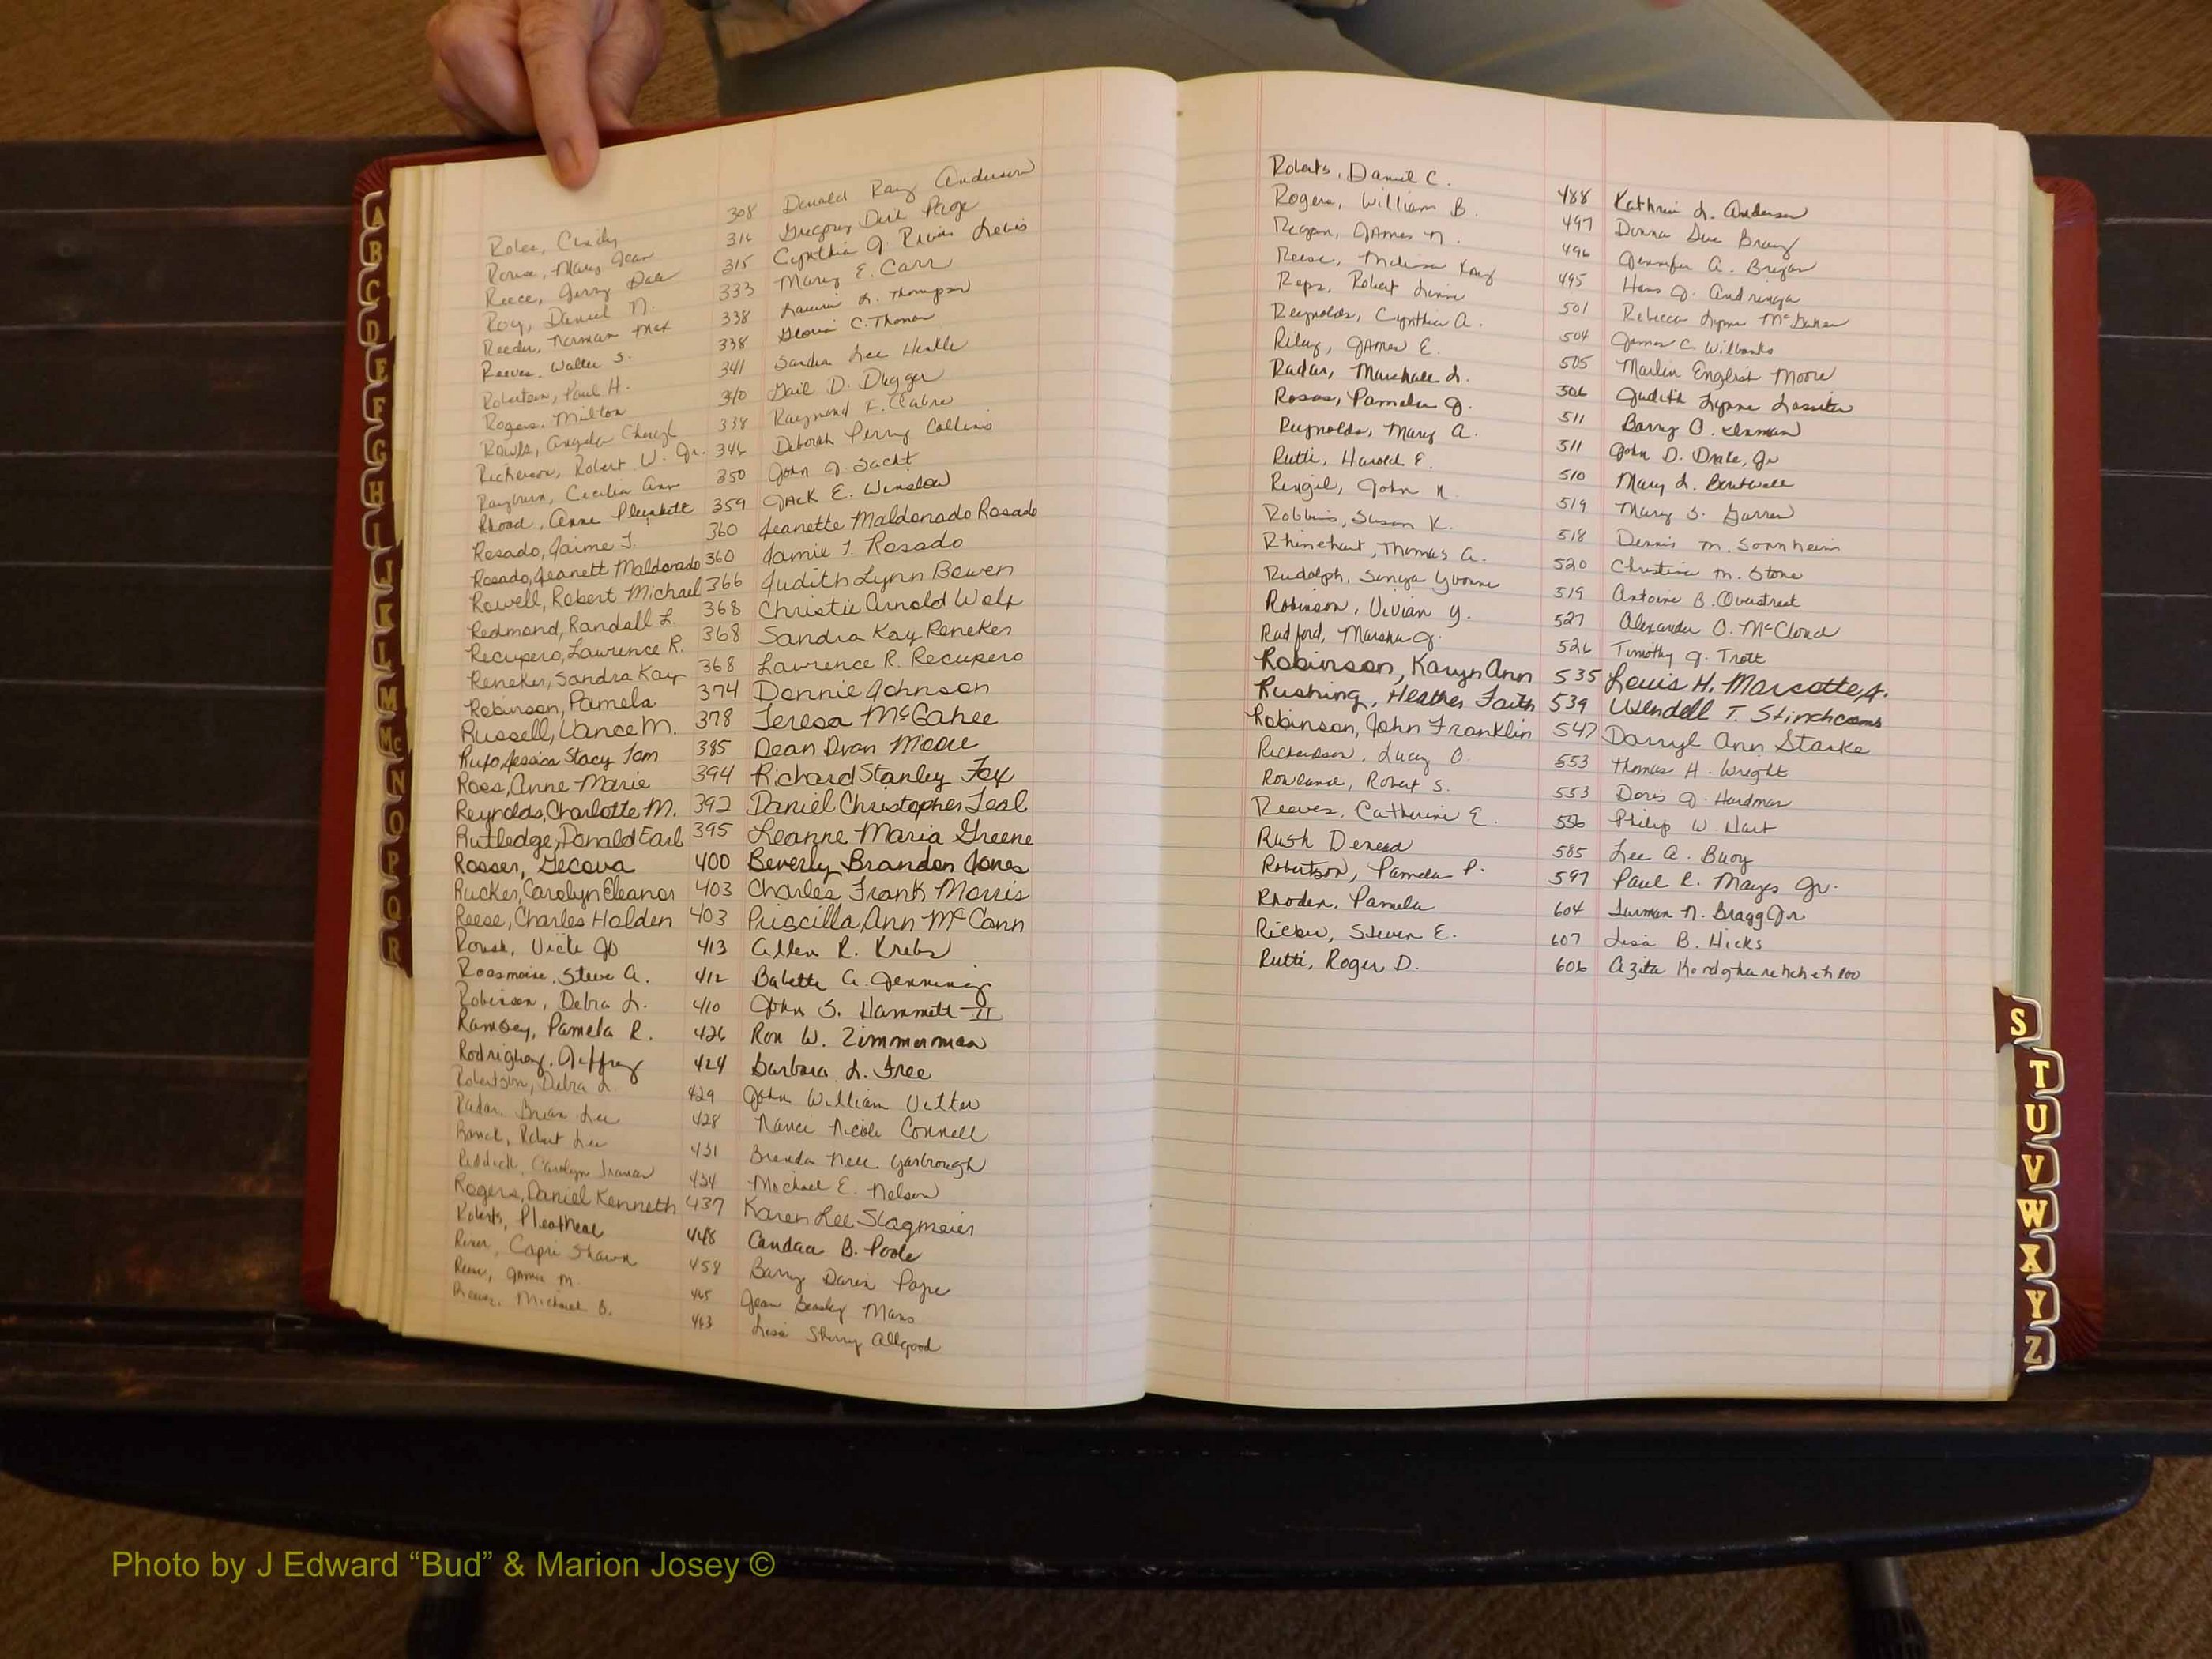 Roles, Cindy 308 Donald Ray Anderson
Rouse, Mary Jean 316 Gregory Dail Page
Reece, Jerry Dale 315 Cynthia J. Lewis
Roy, Daniel N. 333 Mary E. Carr
Reeder, Norman Max 338 Laurie L. Thompson
Reeves, Walter S. 338 Gloria C. Thomas
Robertson, Paul H. 341 Sandra Lee Henkle
Rogers, Milton 340 Gail D. Dugger
Rowls, Angela Cheryl 338 Raymond F.
Rickerson, Robert W. Jr. 346 Deborah Perry Collins
Rayburn, Cecilia Ann 350 John J. Sacht
Rhoad, Anne Plunkett 359 Jack E. Winslow
Rosado, Jaime I. 360 Jeanette Maldonado Rosado
Rosado, Jeanett Maldonado 360 Jamie I. Rosado
Rowell, Robert Michael 366 Judith Lynn Bowen
Redmond, Randall L. 368 Christie Arnold Wolf
Recupero, Lawrence R. 368 Sandra Kay Reneker
Reneker, Sandra Kay 368 Lawrence R. Recupero
Robinson, Pamela 374 Donnie Johnson
Russell, Vance M. 378 Teresa McGahee
Rufo Jessica Stacy Tom 385 Dean Dvan Moore
Ross, Anne Marie 394 Richard Stanley Fox
Reynolds, Charlotte M. 392 Daniel Christopher Teal
Rutledge, Donald Earl 395 Leanne Maria Greene
Rosser, Gecova 400 Beverly Brandon Jones
Rucker, Carolyn Eleanor 403 Charles Frank Morris
Reese, Charles Holden 403 Priscilla Ann McCann
Roush, Vicki Jo 413 Allen R. Krebs
Rossmoise, Steve A. 412 Babette A. Jennings
Robinson, Debra L. 410 John S. Hammett II
Ramsey, Pamela R. 426 Ron W. Zimmerman
Jeffrey 424 Barbara L. Free
Robertson, Debra L. 429 John William Vetter
Radar, Brian Lee 428 Nance Nicole Connell
Robert Lee 431 Brenda Nell Yarbrough
Reddick, Carolyn 434 Michael E. Nelson
Rogers, Daniel Kenneth 437 Karen Lee Slagmeier
Roberts, Pleatheae 448 Candace B. Poole
Capri Shawn 458 Barry Darin Pope
James M. 465 Jean Beasley Mans
Reeves, Michael B. 463 Lisa Sherry Allgood
Roberts, Daniel C. 488 Kathrin L. Anderson
Rogers, William B. 497 Donna Sue Brany
Regan, James N. 496 Jennifer A. Bryan
Reese, Melissa Kay 495 Hans J. Andringa
Reps, Robert 501 Rebecca Lynn McGahee
Reynolds, Cynthia A. 504 James C. Wilbanks
Riley, James E. 505 Marlin English Moore
Radar, Marshall L. 506 Judith Lynne Lassiter
Rosas, Pamela J. 511 Barry O. Kinman
Reynolds, Mary A. 511 John D. Drake, Jr
Rutti, Harold E. 510 Mary L. Boutwell
Ringil, John N. 519 Mary S. Garren
Robbins, Susan K. 518 Dennis M. Sonnheim
Rhinehart, Thomas A. 520 Christine M. Stone
Rudolph, Sonya Yvonne 519 Antoine B. Overstreet
Robinson, Vivian Y. 527 Alexander O. McCloud
Radford, Marsha J. 526 Timothy J. Trott
Robinson, Karyn Ann 535 Louis H. Marcotte Jr.
Rushing, Heather Faith 539 Wendell T. Stinchcomb
Robinson, John Franklin 547 Darryl Ann Starke
Richardson, Lucy O. 553 Thomas H. Wright
Rowland, Robert S. 553 Doris J. Hardman
Reeves, Catherine E. 556 Philip W. Hart
Rush Denead 585 Lee A. Buoy
Robertson, Pamela P. 597 Paul R. Mayes Jr.
Rhoden, Pamela 604 Furman N. Bragg Jr.
Ricker, Steven E. 607 Lisa B. Hicks
Rutti, Roger D. 606 Azita
A
B
C
D
E
F
G
H
I
J
K
L
M
Mc
N
O
P
Q
R
S
T
U
V
W
X
Y
Z
Photo by J Edward “Bud” & Marion Josey ©